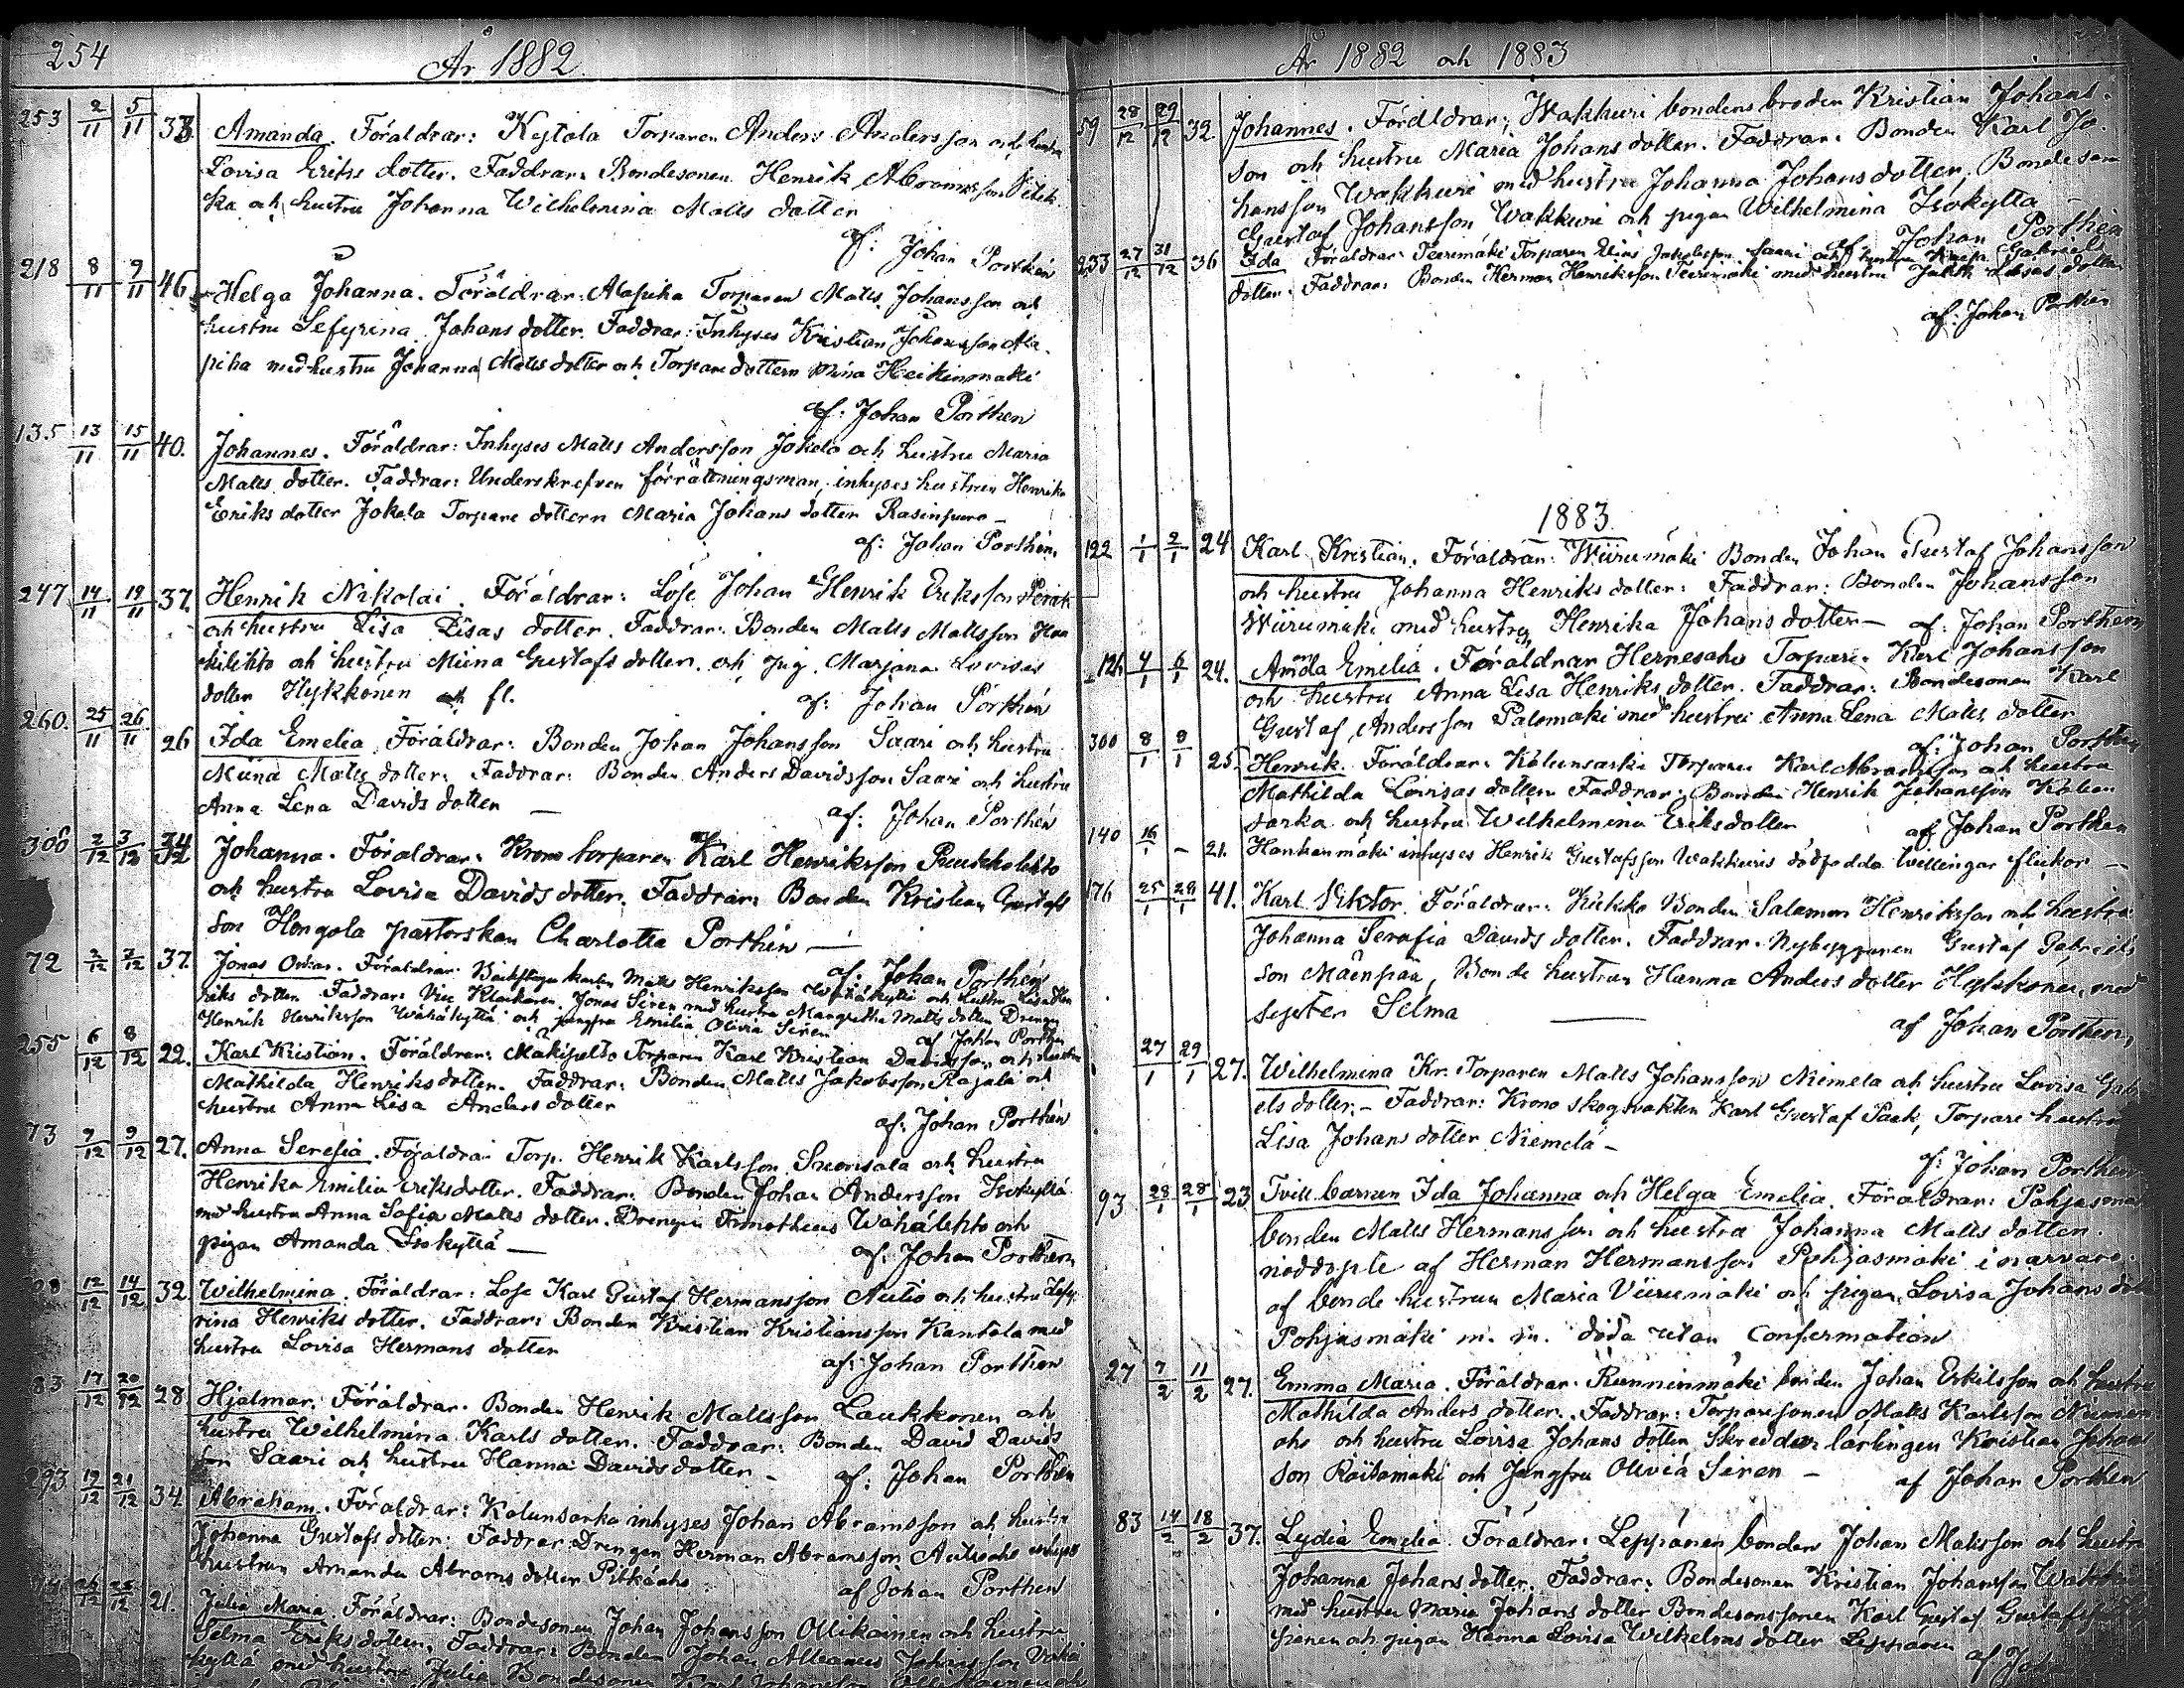 254
År 1882
253 2/11 5/11 33. Amanda. Föräldrar: Kejtala Torparen Anders Andersson och hustru
Lovisa Eriks dotter. Faddrar: Bondesonen Henrik Abramsson
ka och hustru Johanna Wilhelmina Matts dotter
af: Johan Porthén
218 8/11 9/11 46. Helga Johanna. Föräldrar: Alapiha Torparen Matts Johansson och
hustru Sefyrina Johans dotter. Faddrar: Inhyses Kristian Johansson Ala-
piha med hustru Johanna Matts dotter och Torpare dottern Mina Heikinmäki
af: Johan Porthen
135 13/11 15/11 40. Johannes. Föräldrar: Inhyses Matts Andersson Jokela och hustru Maria
Matts dotter. Faddrar: Underskrefven förrättningsman, inhyses hustrun Henrika
Eriks dotter Jokela Torpare dottern Maria Johans dotter Rasinpuro –
af: Johan Porthén,
247 14/11 19/11 37. Henrik Nikolai. Föräldrar: Löse Johan Henrik Eriksson
och hustru Lisa Lisas dotter. Faddrar: Bonden Matts Mattsson
och hustru Miina Gustafs dotter. och pig. Marjana Lovisas
dotter Hykkönen fl.
af: Johan Porthén
260. 25/11 26/11 26 Ida Emelia. Föräldrar: Bonden Johan Johansson Saari och hustru
Miina Matts dotter. Faddrar: Bonden Anders Davidsson Saari och hustru
Anna Lena Davids dotter –
af: Johan Porthén
300 2/12 3/12 Johanna. Föräldrar: Krono torparen Karl Henriksson Ruukkolehto
och hustru Lovisa Davids dotter. Faddrar: Bonden Kristian Gustafs
son Hongola pastorskan Charlotta Porthén –
af: Johan Porthén
72 2/12 7/12 37. Jonas Oskar. Föräldrar: Matts Henriksson Wähäkyttä och hustru Lisa Hen
riks dotter Faddrar: Vice Klockaren Jonas Siren med hustru Margretha Matts dotter Drengen
Henrik Henriksson Wähäkyttä och jungfru Emilia Olivia Siren
af Johan Porthen
255 6/12 8/12 22. Karl Kristian. Föräldrar: Mäkipelto Torparen Karl Kristian Davidsson och hustru
Mathilda Henriks dotter. Faddrar: Bonden Matts Jakobsson Rajala och
hustru Anna Lisa Anders dotter
af: Johan Porthén
73 7/12 9/12 27. Anna Serefia. Föräldrar Torp. Henrik Karlsson Suorisala och hustru
Henrika Emilia Eriksdotter. Faddrar: Bonden Johan Andersson Isokyttä
med hustru Anna Sofia Matts dotter. Drengen Timotheus Wähälehto och
pigan Amanda Isokyttä –
af: Johan Porthen,
12/12 14/12 32 Wilhelmina. Föräldrar: Löse Karl Gustaf Hermansson Autio och hustru Sefy
rina Henriks dotter. Faddrar: Bonden Kristian Kristiansson Kantola med
hustru Lovisa Hermans dotter
af: Johan Porthen
83 17/12 20/12 28 Hjalmar. Föräldrar. Bonden Henrik Mattsson Laukkonen och
hustru Wilhelmina Karls dotter. Faddrar: Bonden David Davids
son Saari och hustru Hanna Davids dotter –
af: Johan Porthén
293 19/12 21/12 34. Abraham. Föräldrar: Kalunsarka inhyses Johan Abramsson och hustru
Johanna Gustafs dotter: Faddrar Drengen Herman Abramsson Autioaho inhyses
hustrun Amanda Abrams dotter Pitkäaho
af Johan Porthen
26/12 21. Julia Maria. Föräldrar: Bondesonen Johan Johansson Ollikainen och hustru
Selma Eriks dotter. Faddrar: Bonden Johan Alleanus Johansson
kyttä med hustru Julia Bondesonen Karl Johansson Ollikainen och
År 1882 och 1883
59 28/12 29/12 32. Johannes. Föräldrar: Wakkuri bondens broder Kristian Johans-
son och hustru Maria Johans dotter. Faddrar: Bonden Karl Jo-
hansson Wakkuri med hustru Johanna Johans dotter, Bonde son
Gustaf Johansson Wakkuri och pigan Wilhelmina Isokyttä –
af Johan Porthén
233 27/12 31/12 36 Ida Föräldrar: Teerimäki Torparen Elias Jakobsson Saari och hustru Kaisa Gabriels
dotter. Faddrar: Bonden Herman Henriksson Teerimäki med hustru Judith Lisas dotter
af: Johan Porthén
1883
122 1/1 2/1 24 Karl Kristian. Föräldrar: Wiirumäki Bonden Johan Gustaf Johansson
och hustru Johanna Henriks dotter: Faddrar: Bonden Johansson
Wiirumäki med hustru Henrika Johans dotter – af: Johan Porthén
126 4/1 6/1 24. Amanda Emelia. Föräldrar Hernesaho Torpare. Karl Johansson
och hustru Anna Lisa Henriks dotter. Faddrar: Bondesonen Karl
Gustaf Andersson Palomäki med hustru Anna Lena Matts dotter
af: Johan Porthén
300 8/1 8/1 25. Henrik. Föräldrar: Kalunsarka Torparen Karl Abramsson och hustru
Mathilda Lovisas dotter Faddrar: Bonden Henrik Johansson Kalun
sarka och hustru Wilhelmina Eriksdotter
af Johan Porthén
140 16/1 – 21. Hankamäki inhyses Henrik Gustafsson Wakkuris dödfödda twillingar flickor –
176 25/1 28/1 41. Karl Viktor. Föräldrar: Kukko Bonden Salamon Henriksson och hustru
Johanna Serafia Davids dotter. Faddrar. Nybyggaren Gustaf Gabriels
son Mäenpää, Bonde hustrun Hanna Anders dotter Hykkönen, med
syster Selma –
af Johan Porthen,
27/1 29/1 27. Wilhelmina Kr. Torparen Matts Johansson Niemelä och hustru Lovisa Gab
els dotter. – Faddrar: Krono skogsvakten Karl Gustaf Saek, Torpare hustrun
Lisa Johans dotter Niemelä –
af: Johan Porthen
93 28/1 28/1 23 Tvill barnen Ida Johanna och Helga Emelia. Föräldrar: Pohjasmäki
bonden Matts Hermansson och hustru Johanna Matts dotter.
nöddöpte af Herman Hermansson Pohjasmäki i närvaro
af bonde hustrun Maria Viirumäki och pigan Lovisa Johans dott
Pohjasmäki m. m. döda utan Confermation
27 7/2 11/2 27. Emma Maria. Föräldrar: Runninmäki bonden Johan Erkilsson och hustru
Mathilda Anders dotter. Faddrar: Torparesonen Matts Karlsson
aho och hustru Lovisa Johans dotter Skreddar lärlingen Kristian Johans
son Räitämäki och Jungfru Olivia Siren –
af Johan Porthen
83 14/2 18/2 37. Lydia Emelia. Föräldrar: Leppänen bonden Johan Matsson och hustru
Johanna Johans dotter. Faddrar: Bondesonen Kristian Johansson Wakkuri
med hustru Maria Johans dotter Bondesonssonen Karl Gustaf Gustafsson
och pigan Hanna Lovisa Wilhelms dotter Leppänen
af Jo